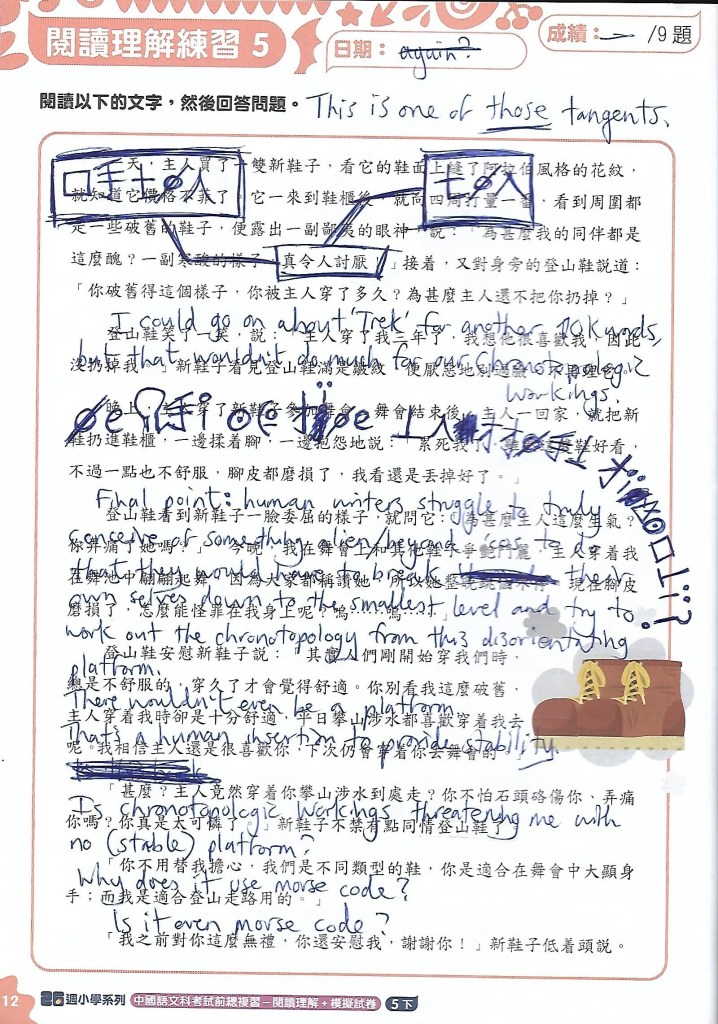 閱讀理解練習 5
日期：again?
成績： /9題
閱讀以下的文字，然後回答問題。 This is one of those tangents.
天，主人買了一雙新鞋子，看它的鞋面上縫了阿拉伯風格的花紋，
就知道它價格不菲了。它一來到鞋櫃後，就向四周打量一番，看到周圍都
是一些破舊的鞋子，便露出一副鄙夷的眼神，說：「為甚麼我的同伴都是
這麼醜？一副寒酸的樣子，真令人討厭！」接着，又對身旁的登山鞋說道：
「你破舊得這個樣子，你被主人穿了多久？為甚麼主人還不把你扔掉？」
I could go on about 'Trek' for another 10k words,
登山鞋笑了一笑，說：「主人穿了我三年了，我想他很喜歡我，因此
but that wouldn't do much for our Chronotopologic
沒扔掉我。」新鞋子看見登山鞋滿是皺紋，便厭惡地別過臉
workings.
晚上，主人穿了新鞋子參加舞會。舞會結束後，主人一回家，就把新
鞋扔進鞋櫃，一邊揉着腳，一邊抱怨地說：「累死我了，雙鞋好看，
不過一點也不舒服，腳皮都磨損了，我看還是丟掉好了。」
Final point: human writers struggle to truly
登山鞋看到新鞋子一臉委屈的樣子，就問它：「為甚麼主人這麼生氣？
conceive of something alien/beyond 'cos to do
你弄痛了她嗎？」「今晚，我在舞會上和其他鞋子爭鬥，主人穿着我
that they would have to break their
在舞池中翩翩起舞，因為大家都稱讚她，所以她整晚跳個不停，現在腳皮
own selves down to the smallest level and try to
磨損了，怎麼能怪罪在我身上呢？嗚……嗚……」
work out the chronotopology from this disorientating
登山鞋安慰新鞋子說：「其實人們剛開始穿我們時，
platform.
總是不舒服的，穿久了才會覺得舒適。你別看我這麼破舊，
There wouldn't even be a platform.
主人穿着我時卻是十分舒適，平日攀山涉水都喜歡穿着我去
That's a human insertion to provide stability.
呢。我相信主人還是很喜歡你，下次仍會穿着你去舞會的。」
「甚麼？主人竟然穿着你攀山涉水到處走？你不怕石頭硌傷你、弄痛
Is chronotopologic workings threatening me with
你嗎？你真是太可憐了。」新鞋子不禁有點同情登山鞋了。
no (stable) platform?
「你不用替我擔心，我們是不同類型的鞋，你是適合在舞會中大顯身
Why does it use morse code?
手；而我是適合登山走路用的。」
Is it even morse code?
「我之前對你這麼無禮，你還安慰我，謝謝你！」新鞋子低着頭說。
12 26週小學系列 中國語文科考試前總複習－閱讀理解＋模擬試卷 5下